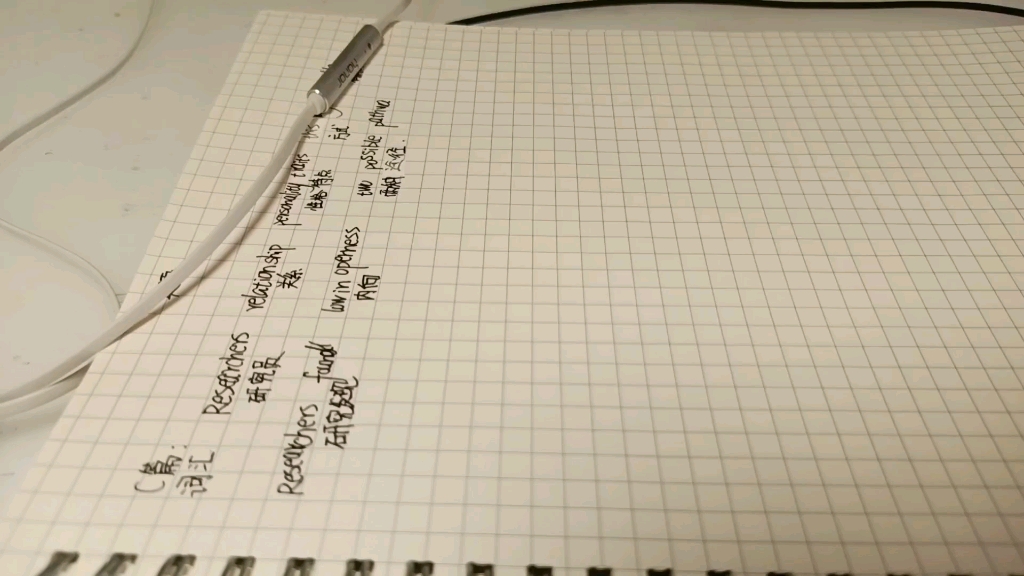 C篇:
词汇
Researchers relationship personality traits
研究员 关系 性格特点 试
Researchers found low in openness two possible pathna
研究发现 内向 两种途径.